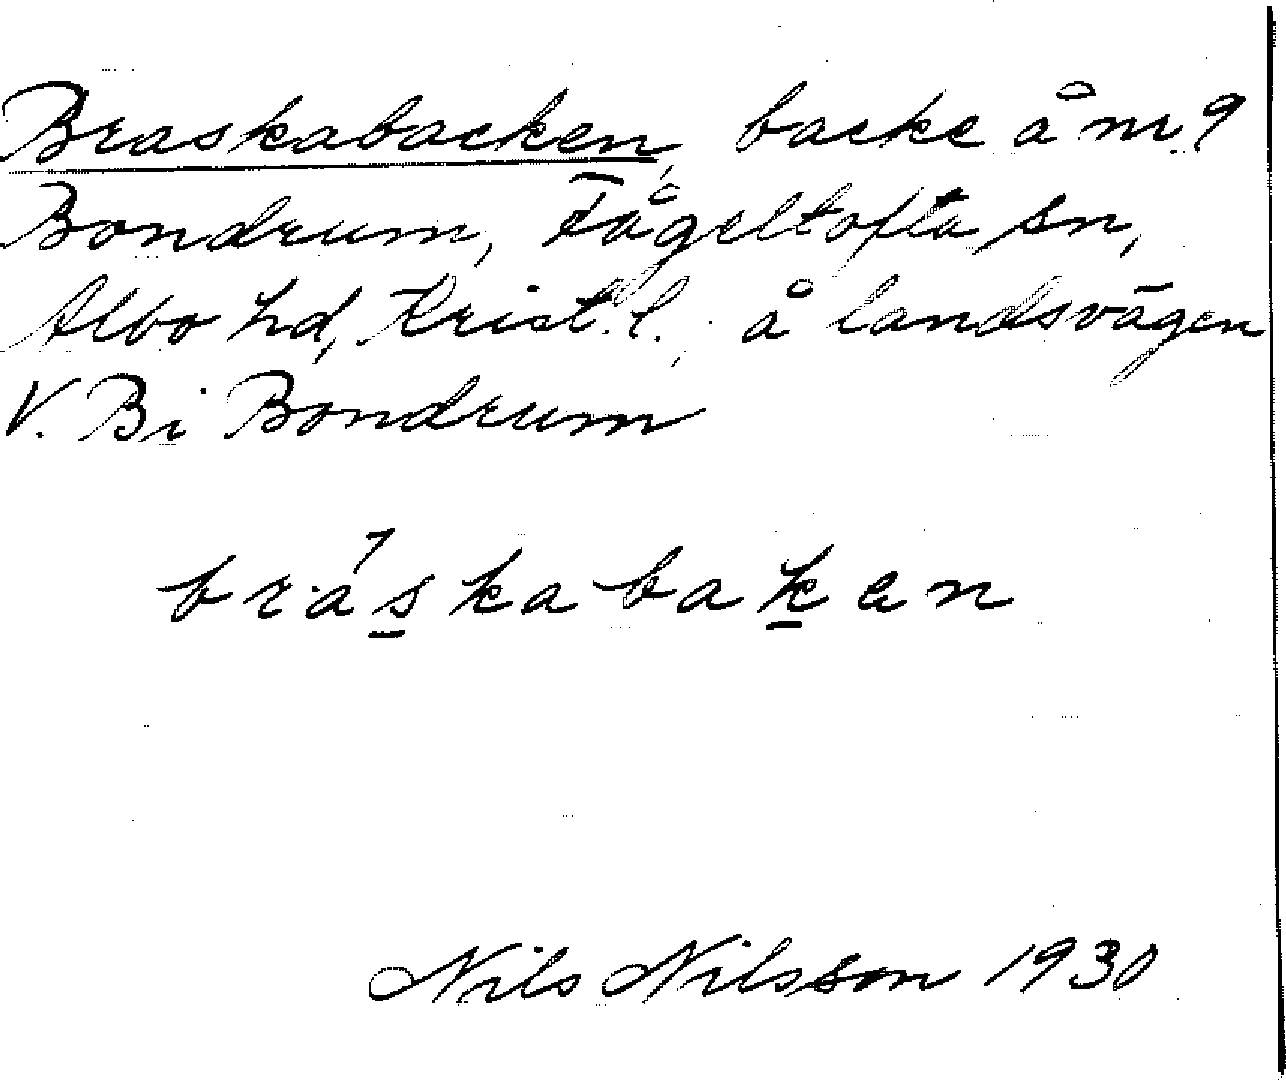 Braskabacken, backe å nr. 9
Bondrum, Fågeltofta sn,
Albo hd, Krist. l., å landsvägen
V. Bi Bondrum
bráskabaken
Nils Nilsson 1930